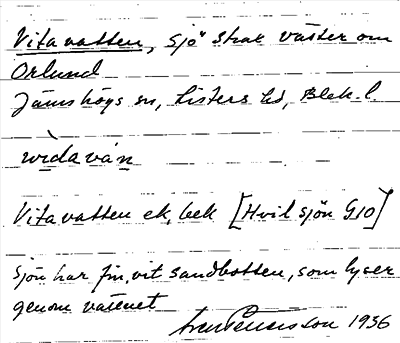 Vitavatten, sjö strax väster om
Orlund
Jämshögs sn, Listers hd, Blek. l.
Vitavatten ek. bek [Hvilsjön G10]
Sjön har fin, vit sandbotten, som lyser
genom vattnet
1936